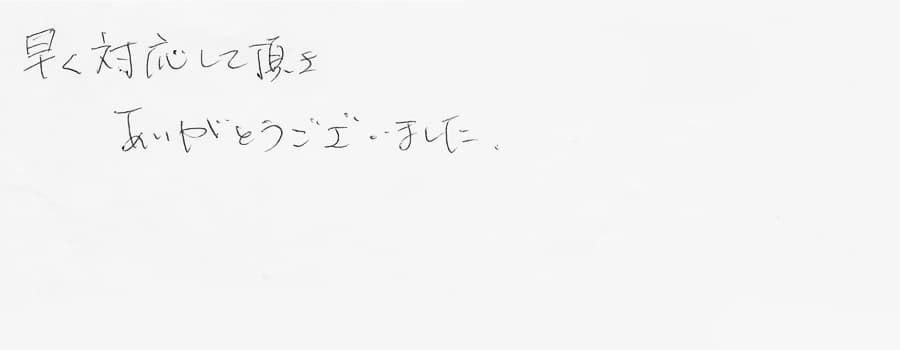 早く対応して頂き
ありがとうございました、